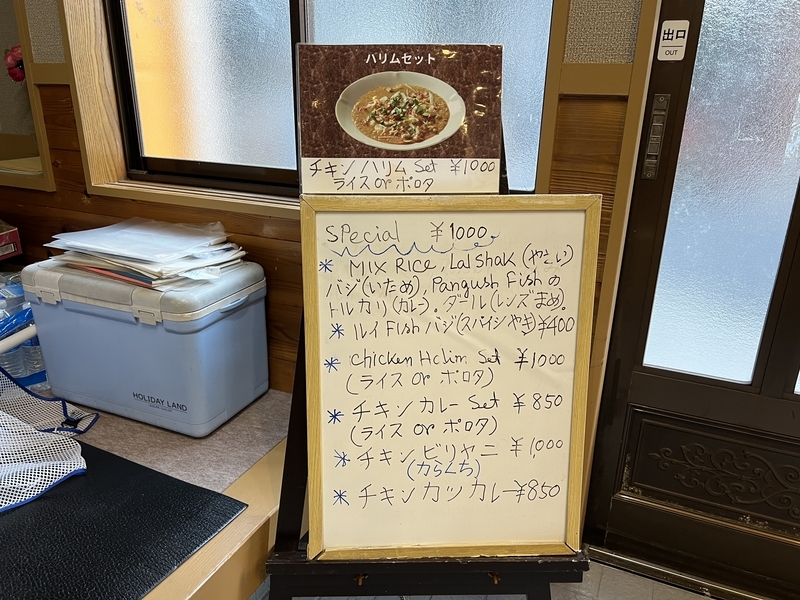 ハリムセット
チキン ハリム Set ¥1000
ライス or ポロタ
出口
OUT
SPecial ¥1000.
* MIX RICe, Lal Shak (やさい)
バジ(いため), Pangush Fish の
トルカリ(カレー)。ダール(レンズまめ)。
* ルイ FIsh バジ(スパイシやき) ¥400
* Chicken Helim Set ¥1000
(ライス or ポロタ)
* チキン カレー Set ¥850
(ライス or ポロタ)
* チキン ビリヤニ ¥1,000
(からくち)
* チキン カツ カレー ¥850
HOLIDAY LAND